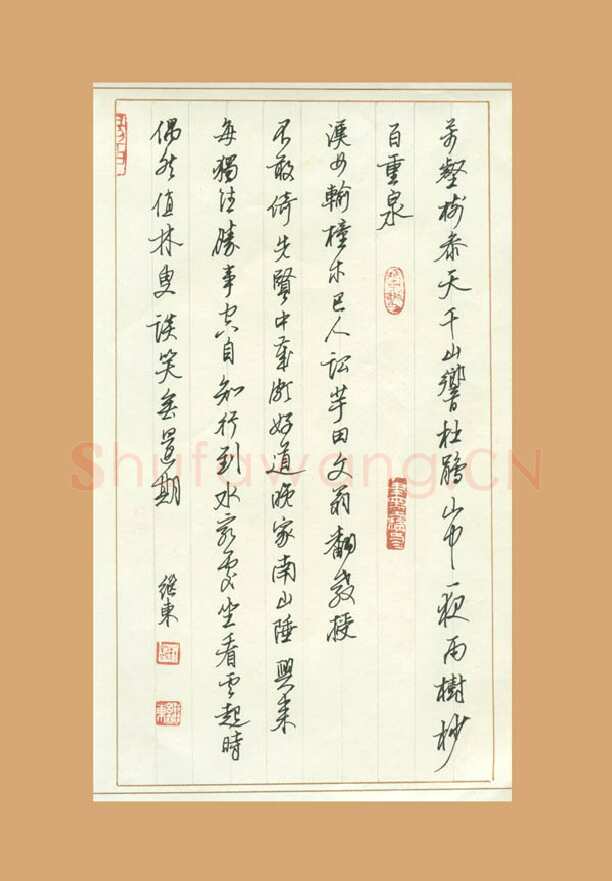 万壑树参天千山響杜鹃山中一夜雨樹杪
百重泉
漢女輸橦布巴人訟芋田文翁翻教授
不敢倚先賢中歲頗好道晚家南山陲興来
每獨往勝事空自知行到水窮處坐看雲起時
偶然值林叟談笑無還期
继東
Shufawang.CN